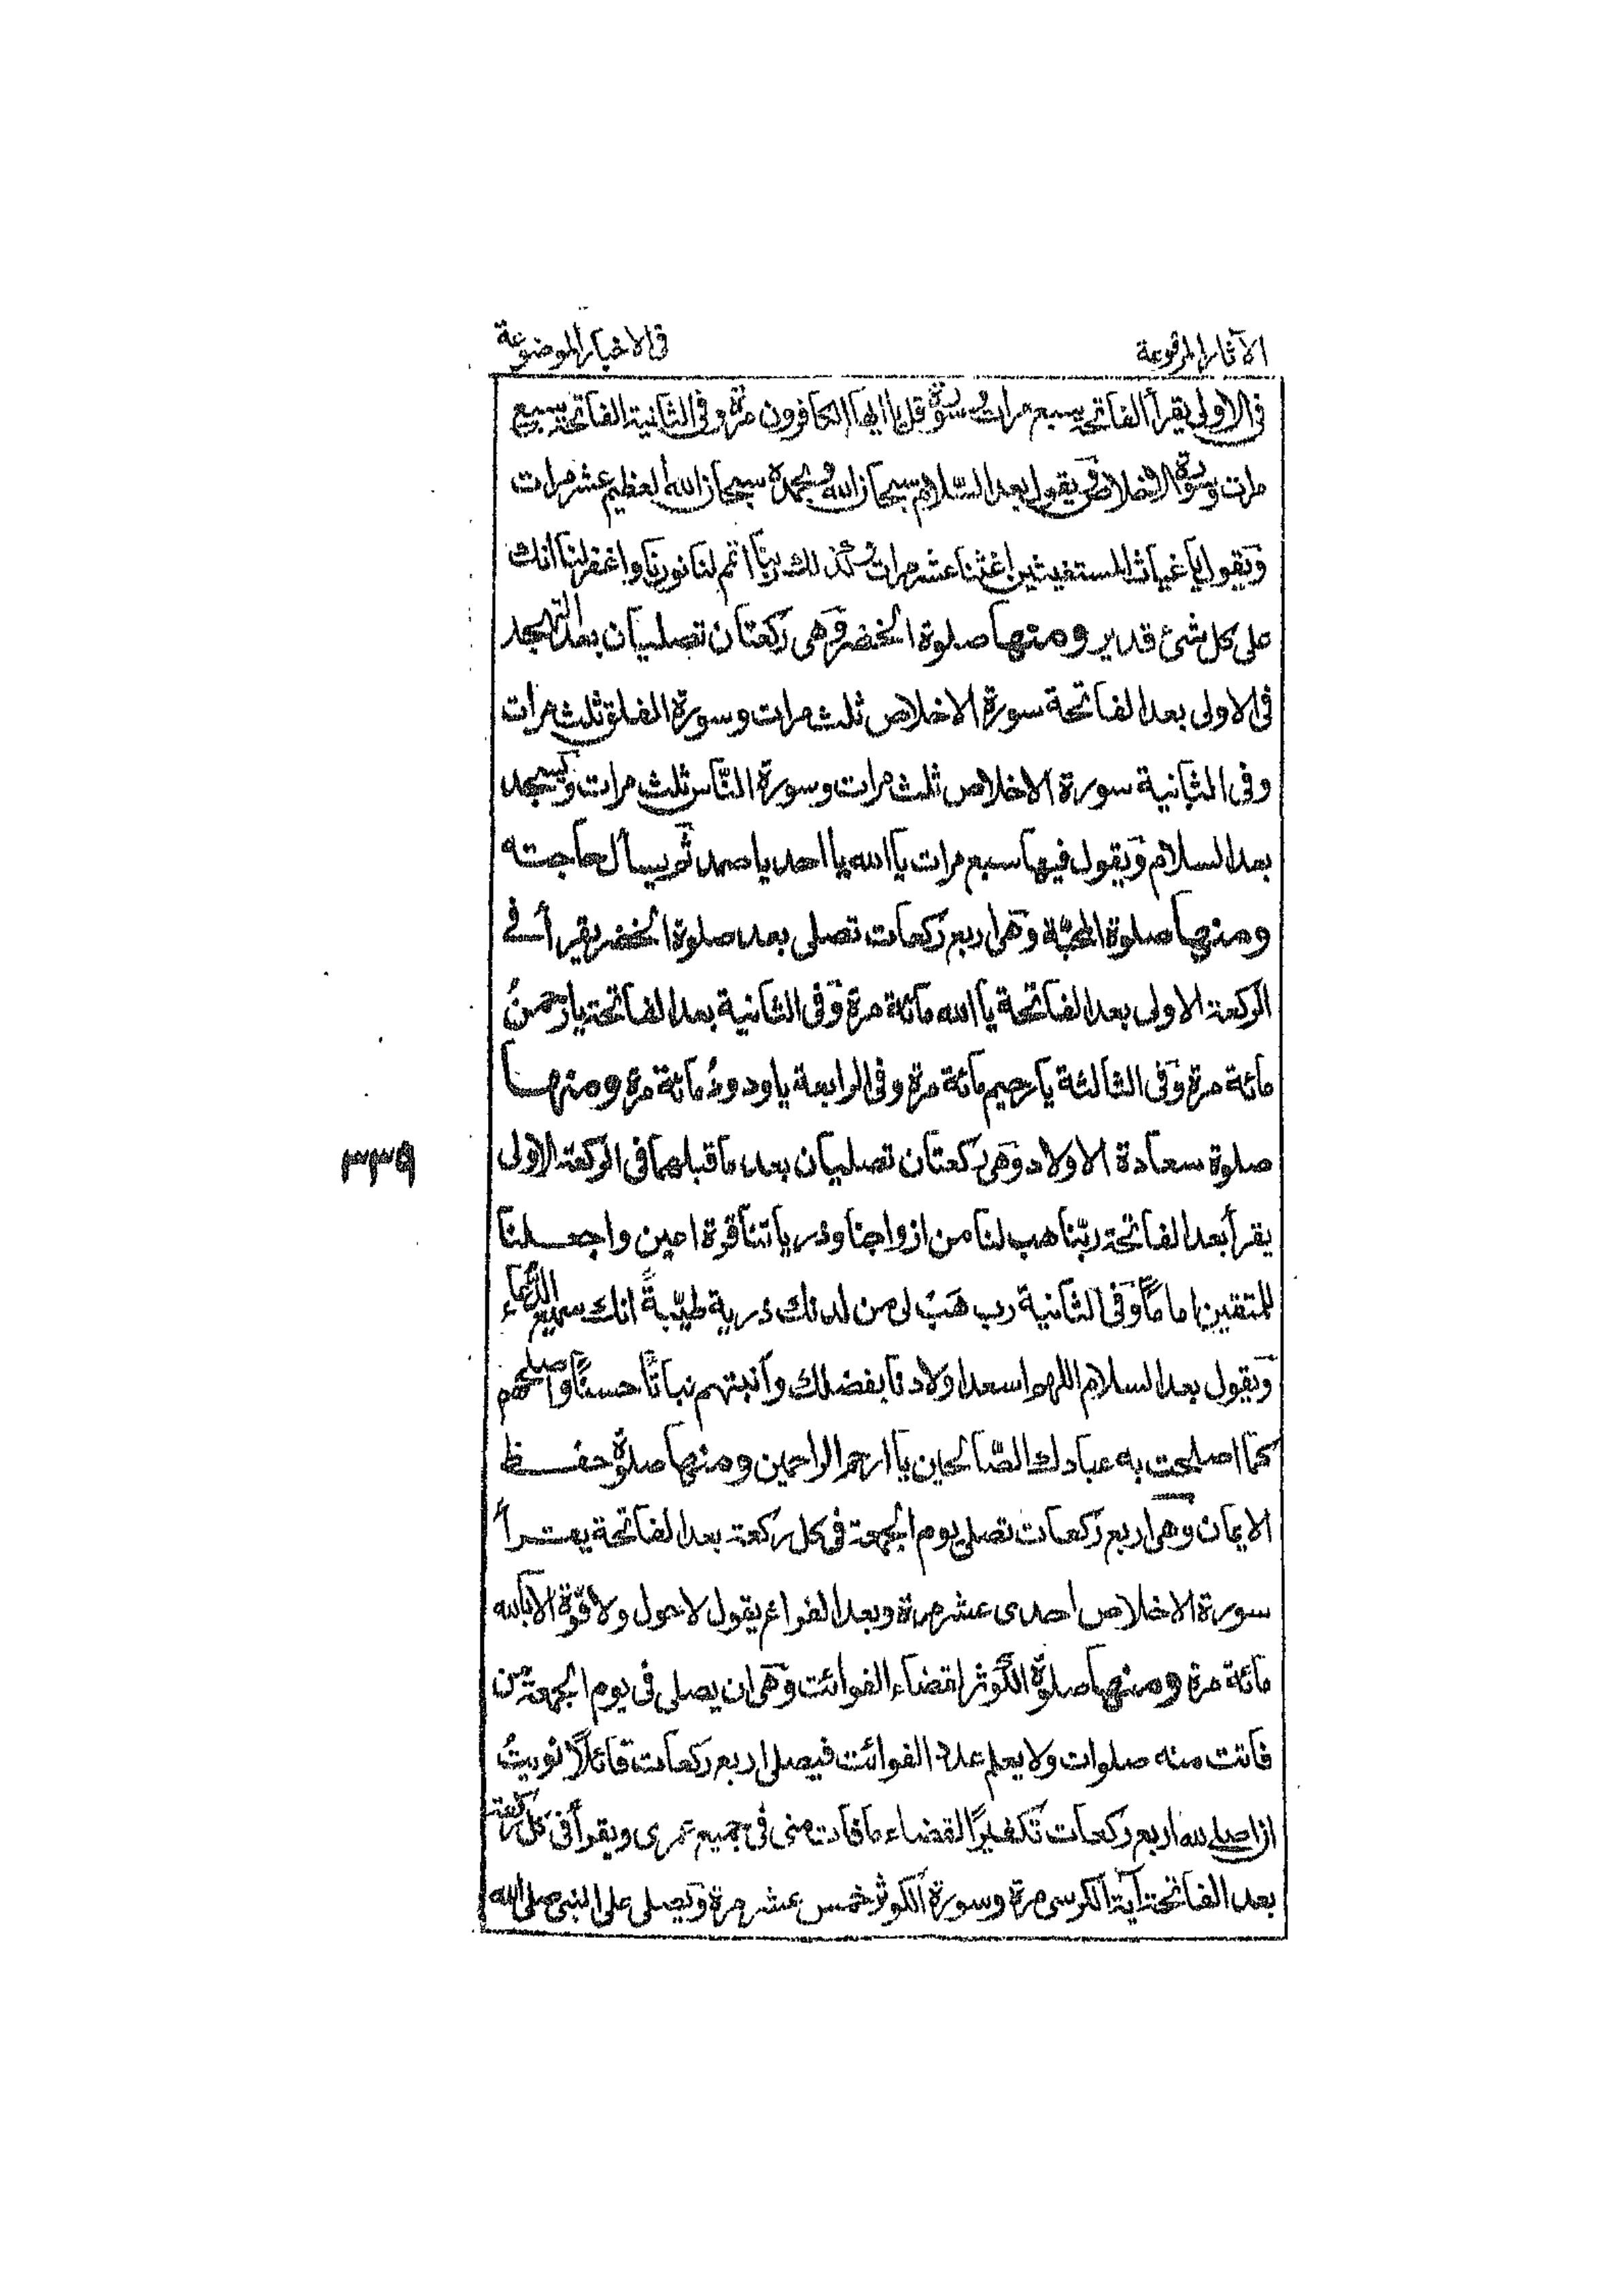 الآثار المرفوعة
في الاخبار الموضوعة
في الاولى يقرأ الفاتحة سبع مرات وسورة قل يا ايها الكافرون مرة وفي الثانية الفاتحة سبع
مرات وسورة الاخلاص ويقول بعد السّلام سبحان الله وبحمده سبحان الله العظيم عشر مرات
ويقول يا غياث المستغيثين اغثنا عشر مرات وكذلك ربنا اتمم لنا نورنا واغفر لنا انك
على كل شئ قدير ومنها صلوة الخضر وهي ركعتان تصليان بعد التهجد
في الاولى بعد الفاتحة سورة الاخلاص ثلث مرات وسورة الفلق ثلث مرات
وفي الثانية سورة الاخلاص ثلث مرات وسورة النّاس ثلث مرات ويسجد
بعد السلام ويقول فيها سبع مرات يا الله يا احد يا صمد ثم يسأل حاجته
ومنها صلوة المحبّة وهي اربع ركعات تصلى بعد صلوة الخضر يقرأ في
الركعة الاولى بعد الفاتحة يا الله مائة مرة وفي الثانية بعد الفاتحة يا رحمنُ
مائة مرة وفي الثالثة يا رحيم مائة مرة وفي الرابعة يا ودودُ مائة مرة ومنها
صلوة سعادة الاولاد وهي ركعتان تصليان بعد ما قبلهما في الركعة الاولى
يقرأ بعد الفاتحة ربّنا هب لنا من ازواجنا وذرياتنا قرة اعين واجعلنا
للمتقين اماماً وفي الثانية رب هَبْ لي من لدنك ذرية طيّبةً انك سميع الدُّعاء
ويقول بعد السلام اللهم اسعد اولادنا بفضلك وأنبتهم نباتًا حسنًا واصلحهم
كما اصلحت به عبادك الصّالحين يا ارحم الراحمين ومنها صلوة حفظ
الايمان وهي اربع ركعات تصلى يوم الجمعة في كل ركعة بعد الفاتحة يقرأ
سورة الاخلاص احدى عشر مرة وبعد الفراغ يقول لا حول ولا قوّة الا بالله
مائة مرة ومنها صلوة الكوثر لقضاء الفوائت وهي ان يصلى في يوم الجمعة من
فاتت منه صلوات ولا يعلم عدد الفوائت فيصلى اربع ركعات قائلاً نويتُ
ان اصلي لله اربع ركعات تكفيرًا لقضاء ما فات منى في جميع عمرى ويقرأ في كل ركعة
بعد الفاتحة آية الكرسى مرة وسورة الكوثر خمس عشر مرة ويصلى على النبى صلى الله
٣٣٩